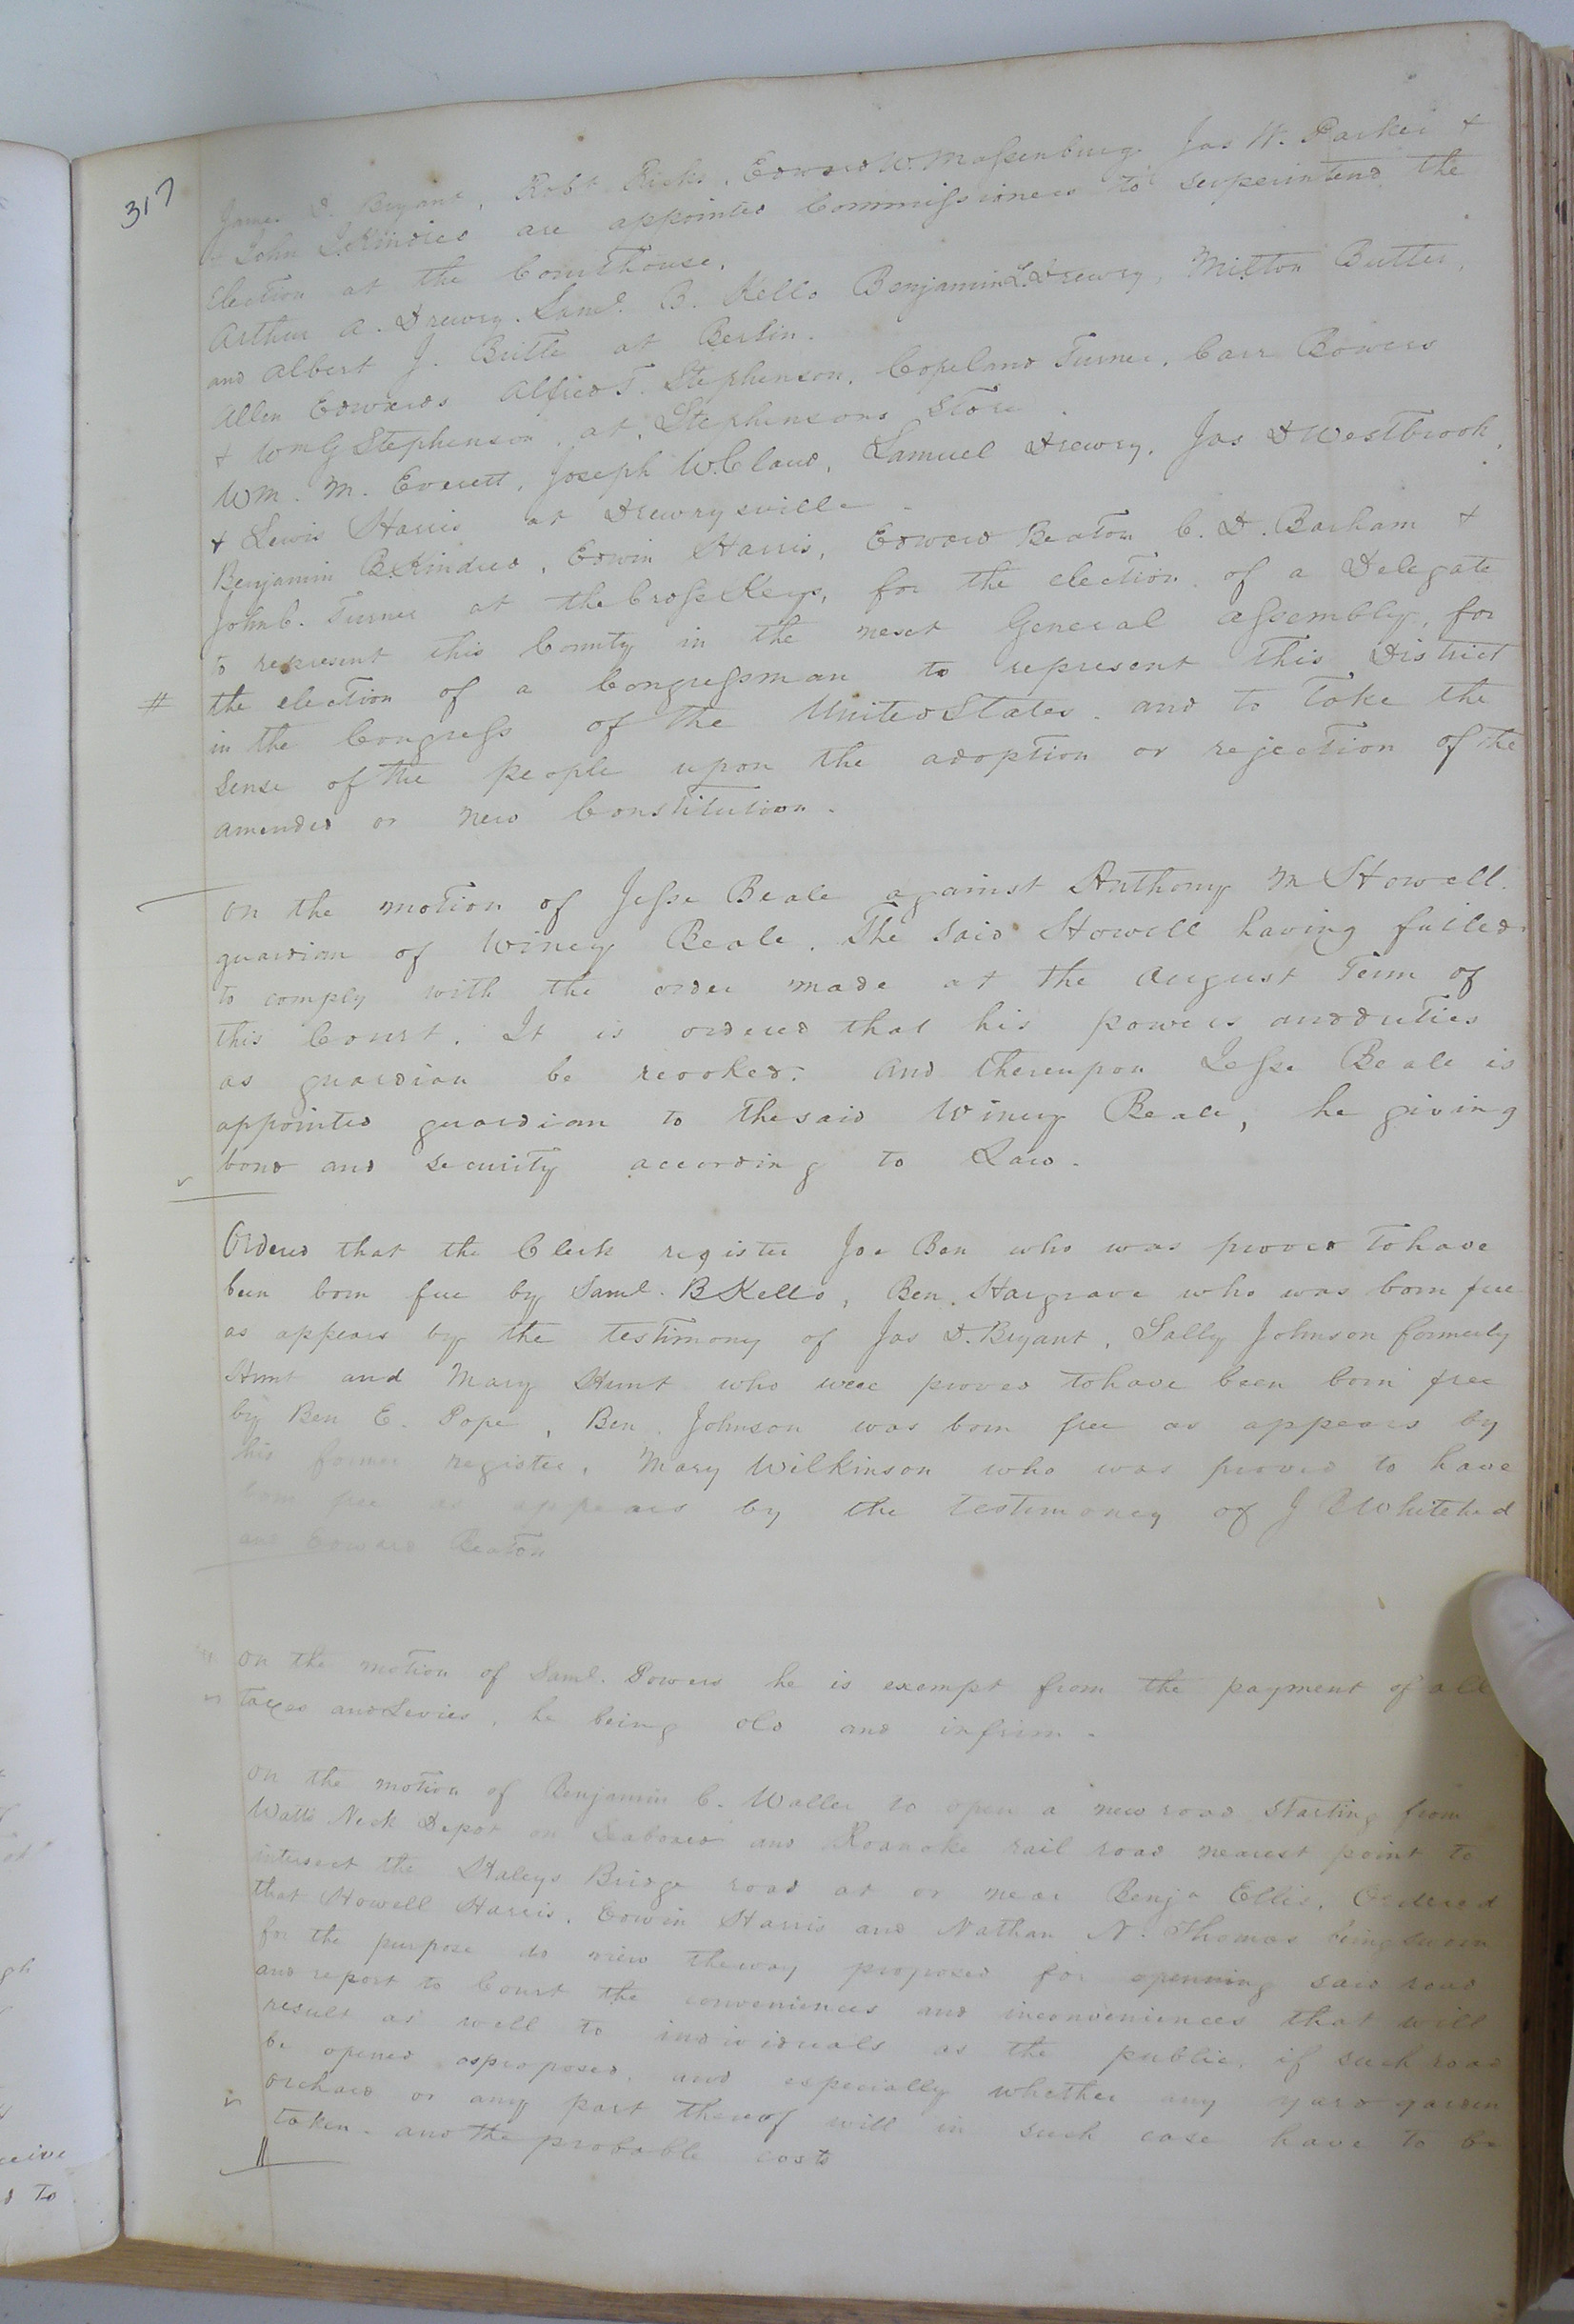 317
James D. Bryant, Robt Ricks, Edward W. Massenburg, Jas W. Parker &
& John J. Kindred are appointed Commissioners to superintend the
Election at the Courthouse.
Arthur A. Drewry. Saml. B. Kello Benjamin L. Drewry, Milton Butler,
and Albert J. Britte at Berlin.
Allen Edwards Alfred T. Stephenson, Copeland Turner, Carr Bowers
& Wm G Stephenson, at Stephensons Store.
Wm. M. Everett, Joseph W. Claud, Samuel Drewry, Jas D Westbrook,
& Lewis Harris at Drewrysville.
Benjamin B. Kindred, Edwin Harris, Edward Beaton C. D. Barham &
John C. Turner at the Cross Keys, for the election of a Delegate
to represent this County in the next General assembly, for
# the election of a Congressman to represent this District
in the Congress of the United States. and to take the
sense of the people upon the adoption or rejection of the
amended or new Constitution.
On the motion of Jesse Beale against Anthony M Howell.
guardian of Winey Beale. The said Howell having failed
to comply with the order made at the August Term of
this Court. It is ordered that his powers and duties
as guardian be revoked. And thereupon Jesse Beale is
appointed guardian to the said Winey Beale, he giving
bond and security according to Law.
Ordered that the Clerk register Joe Ben who was proved to have
been born free by Saml. B Kello, Ben. Hargrave who was born free
as appears by the testimony of Jas D. Bryant, Sally Johnson formerly
Hunt and Mary Hunt who were proved to have been born free
by Ben E. Pope, Ben. Johnson was born free as appears by
his former register, Mary Wilkinson who was proved to have
born free as appears by the testimoney of J Whitehed
and Edward Beaton
On the motion of Saml. Powers he is exempt from the payment of all
taxes and Levies, he being old and infirm.
On the motion of Benjamin C. Waller to open a new road starting from
Watts Neck Depot on Seaboard and Roanoke rail road nearest point to
intersect the Haleys Bridge road at or near Benja Ellis. Ordered
that Howell Harris, Edwin Harris and Nathan N. Thomas being sworn
for the purpose do view the way proposed for openning said road
and report to Court the conveniences and inconveniences that will
result as well to individuals as the public, if such road
be opened as proposed, and especially whether any yard garden
orchard or any part thereof will in such case have to be
taken. and the probable costs